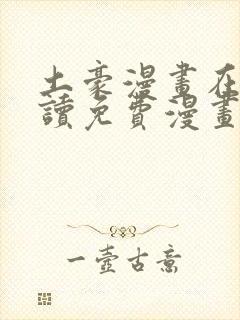 土豪漫畫在
讀免費漫畫
一壺古意